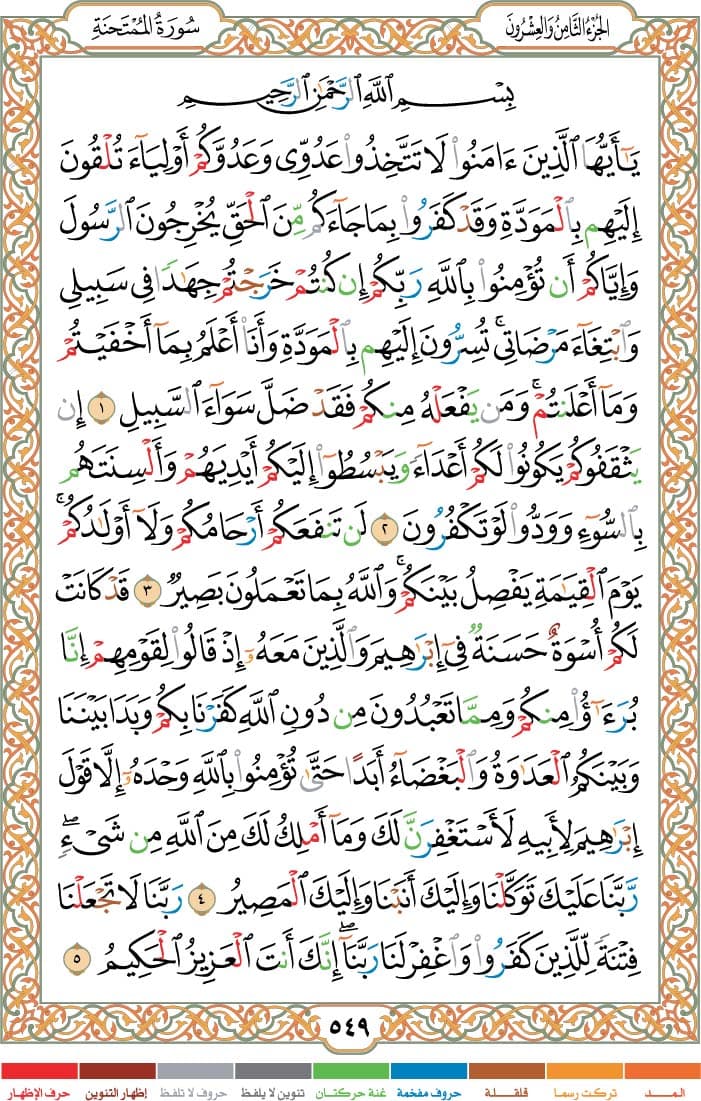 الجُزْءُ الثَّامِنُ وَالعِشْرُونَ
سُورَةُ المُمْتَحنَة
بِسْمِ اللَّهِ الرَّحْمَٰنِ الرَّحِيمِ
يَٰٓأَيُّهَا الَّذِينَ ءَامَنُوا۟ لَا تَتَّخِذُوا۟ عَدُوِّى وَعَدُوَّكُمْ أَوْلِيَآءَ تُلْقُونَ
إِلَيْهِم بِالْمَوَدَّةِ وَقَدْ كَفَرُوا۟ بِمَا جَآءَكُم مِّنَ الْحَقِّ يُخْرِجُونَ الرَّسُولَ
وَإِيَّاكُمْ أَن تُؤْمِنُوا۟ بِاللَّهِ رَبِّكُمْ إِن كُنتُمْ خَرَجْتُمْ جِهَٰدًا فِى سَبِيلِى
وَابْتِغَآءَ مَرْضَاتِى ۚ تُسِرُّونَ إِلَيْهِم بِالْمَوَدَّةِ وَأَنَا۠ أَعْلَمُ بِمَآ أَخْفَيْتُمْ
وَمَآ أَعْلَنتُمْ ۚ وَمَن يَفْعَلْهُ مِنكُمْ فَقَدْ ضَلَّ سَوَآءَ السَّبِيلِ ١ إِن
يَثْقَفُوكُمْ يَكُونُوا۟ لَكُمْ أَعْدَآءً وَيَبْسُطُوٓا۟ إِلَيْكُمْ أَيْدِيَهُمْ وَأَلْسِنَتَهُم
بِالسُّوٓءِ وَوَدُّوا۟ لَوْ تَكْفُرُونَ ٢ لَن تَنفَعَكُمْ أَرْحَامُكُمْ وَلَآ أَوْلَٰدُكُمْ ۚ
يَوْمَ الْقِيَٰمَةِ يَفْصِلُ بَيْنَكُمْ ۚ وَاللَّهُ بِمَا تَعْمَلُونَ بَصِيرٌ ٣ قَدْ كَانَتْ
لَكُمْ أُسْوَةٌ حَسَنَةٌ فِىٓ إِبْرَٰهِيمَ وَالَّذِينَ مَعَهُۥٓ إِذْ قَالُوا۟ لِقَوْمِهِمْ إِنَّا
بُرَءَٰٓؤُا۟ مِنكُمْ وَمِمَّا تَعْبُدُونَ مِن دُونِ اللَّهِ كَفَرْنَا بِكُمْ وَبَدَا بَيْنَنَا
وَبَيْنَكُمُ الْعَدَٰوَةُ وَالْبَغْضَآءُ أَبَدًا حَتَّىٰ تُؤْمِنُوا۟ بِاللَّهِ وَحْدَهُۥٓ إِلَّا قَوْلَ
إِبْرَٰهِيمَ لِأَبِيهِ لَأَسْتَغْفِرَنَّ لَكَ وَمَآ أَمْلِكُ لَكَ مِنَ اللَّهِ مِن شَىْءٍ ۖ
رَّبَّنَا عَلَيْكَ تَوَكَّلْنَا وَإِلَيْكَ أَنَبْنَا وَإِلَيْكَ الْمَصِيرُ ٤ رَبَّنَا لَا تَجْعَلْنَا
فِتْنَةً لِّلَّذِينَ كَفَرُوا۟ وَاغْفِرْ لَنَا رَبَّنَآ ۖ إِنَّكَ أَنتَ الْعَزِيزُ الْحَكِيمُ ٥
٥٤٩
المــد تركت رسما قلقلة حروف مفخمة غنة حركتان تنوين لا يلفظ حروف لا تلفظ إظهار التنوين حرف الإظهار